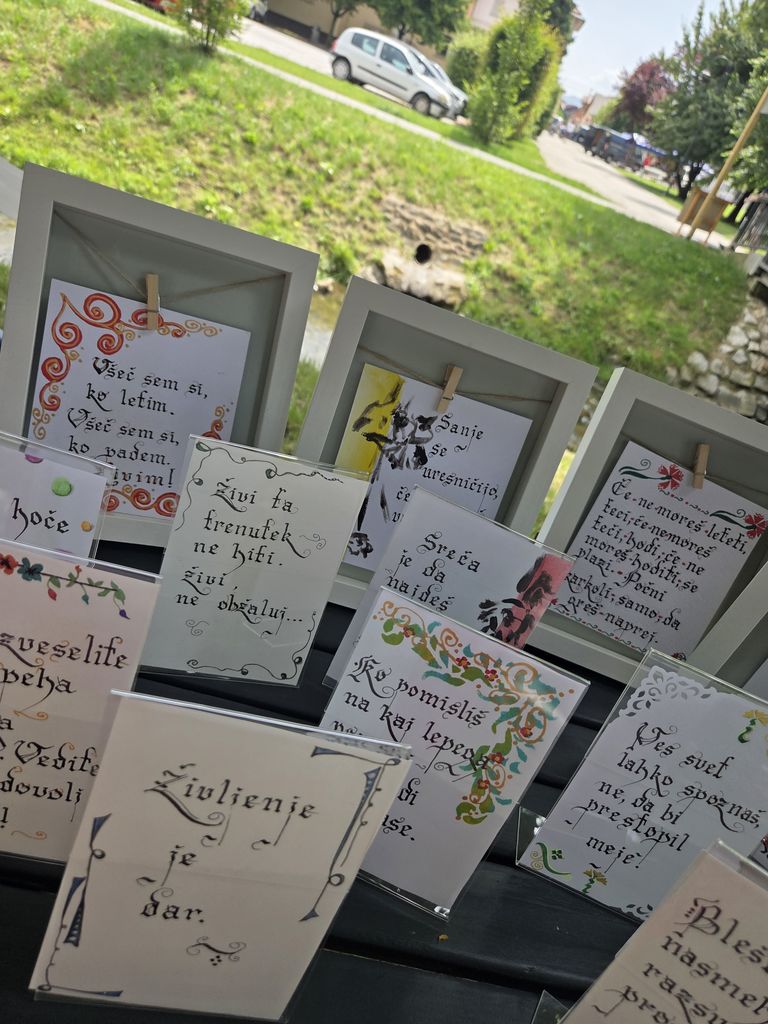 Všeč sem si,
ko letim.
Všeč sem si,
ko padem.
Živim!
Sanje
se
uresničijo,
če
Če ne moreš leteti,
teci, če ne moreš
teči, hodi, če ne
moreš hoditi, se
plazi. Počni
karkoli, samo, da
greš naprej.
hoče
Živi ta
trenutek
ne hiti.
Živi,
ne obžaluj...
Sreča
je da
najdeš
Ko pomisliš
na kaj lepega
Ves svet
lahko spoznaš,
ne, da bi
prestopil
meje!
Vedite
dovolj
Življenje
je
dar.